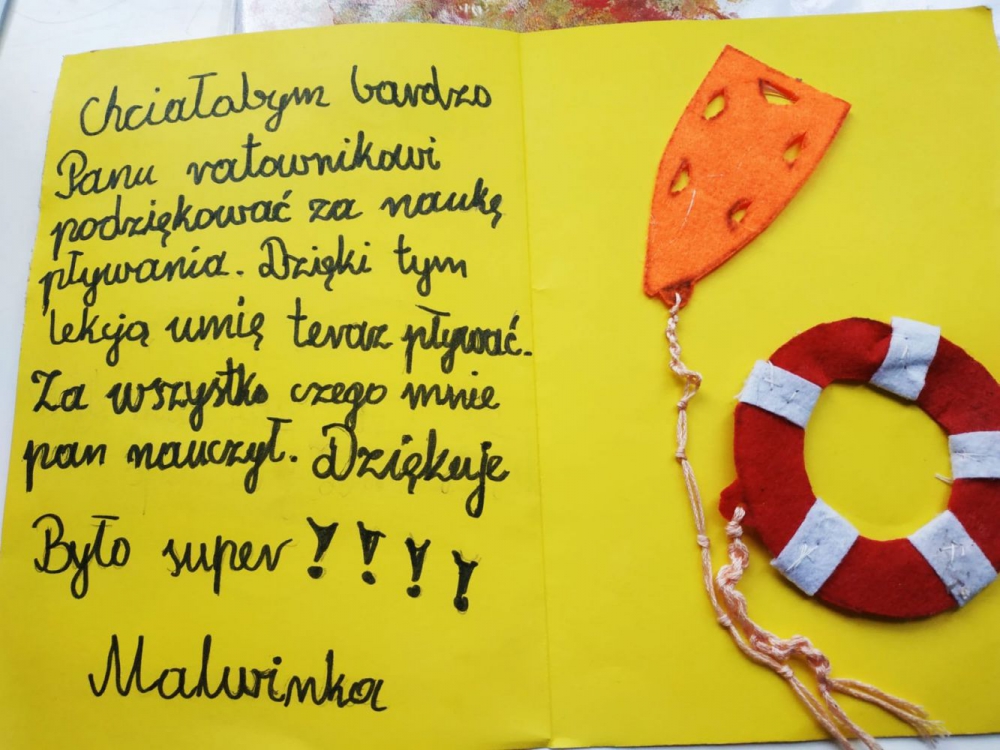 Chciałabym bardzo
Panu ratownikowi
podziękować za naukę
pływania. Dzięki tym
lekcją umię teraz pływać.
Za wszystko czego mnie
pan nauczył. Dziękuje
Było super !!!!
Malwinka